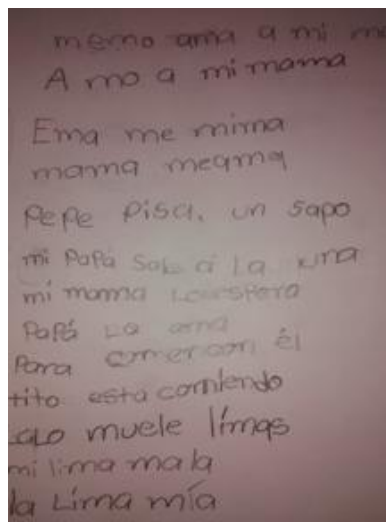 memo ama a mi
A mo a mi mama
Ema me mima
mama meama
Pepe Pisa. un sapo
mi Papá Sale a La una
mi mama Loespera
Papá La ama
Para comer con él
tito esta comiendo
muele límas
mi lima mala
la Líma mía